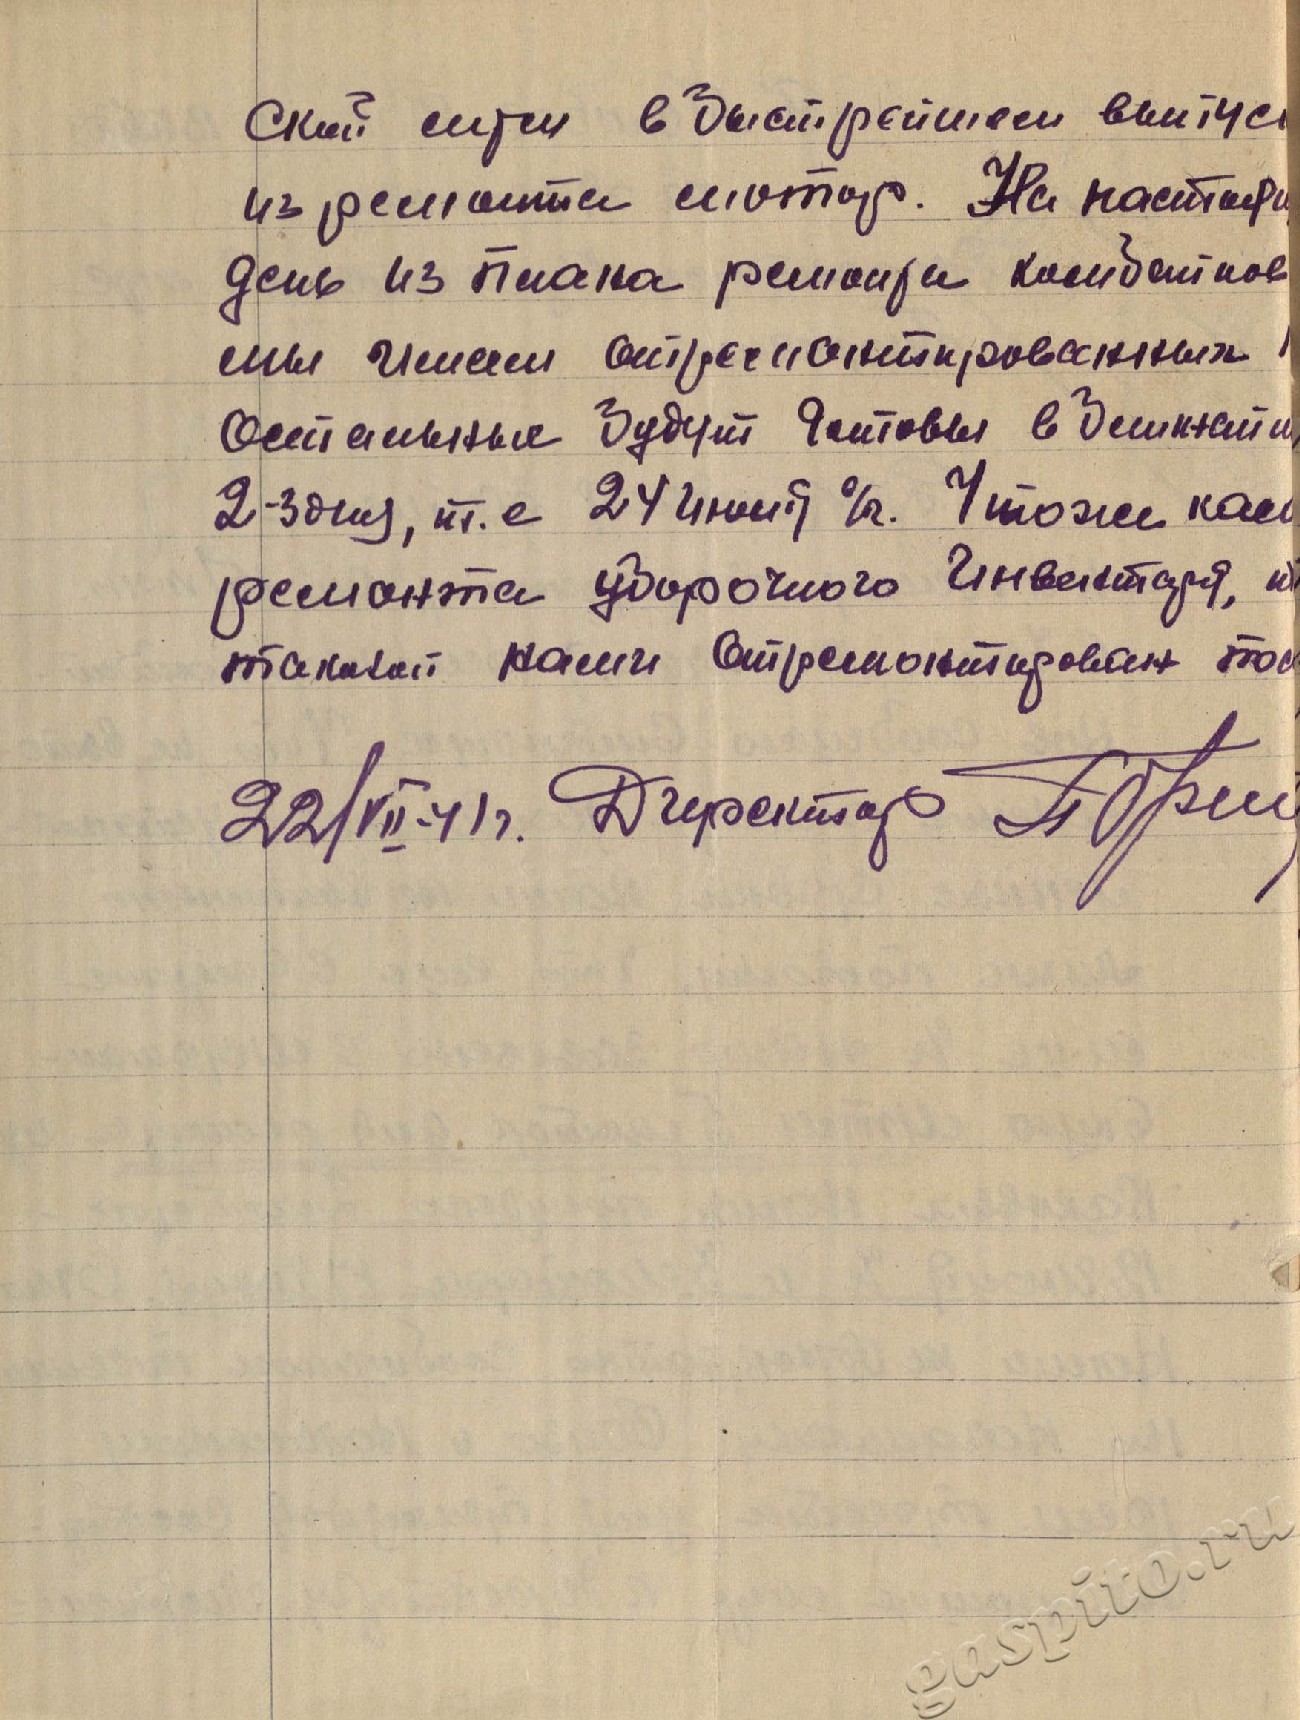 ской меры в быстрейшем выпус
из ремонта мотор. На настоящ
день из плана ремонта комбайнов
мы имеем отремонтированных
остальные будут готовы в ближайш
2-3 дня, т. е 24 июля с/г. Что же каса
ремонта уборочного инвентаря, т
таковой нами отремонтирован
22/VII-41г. Директор
gaspito.ru